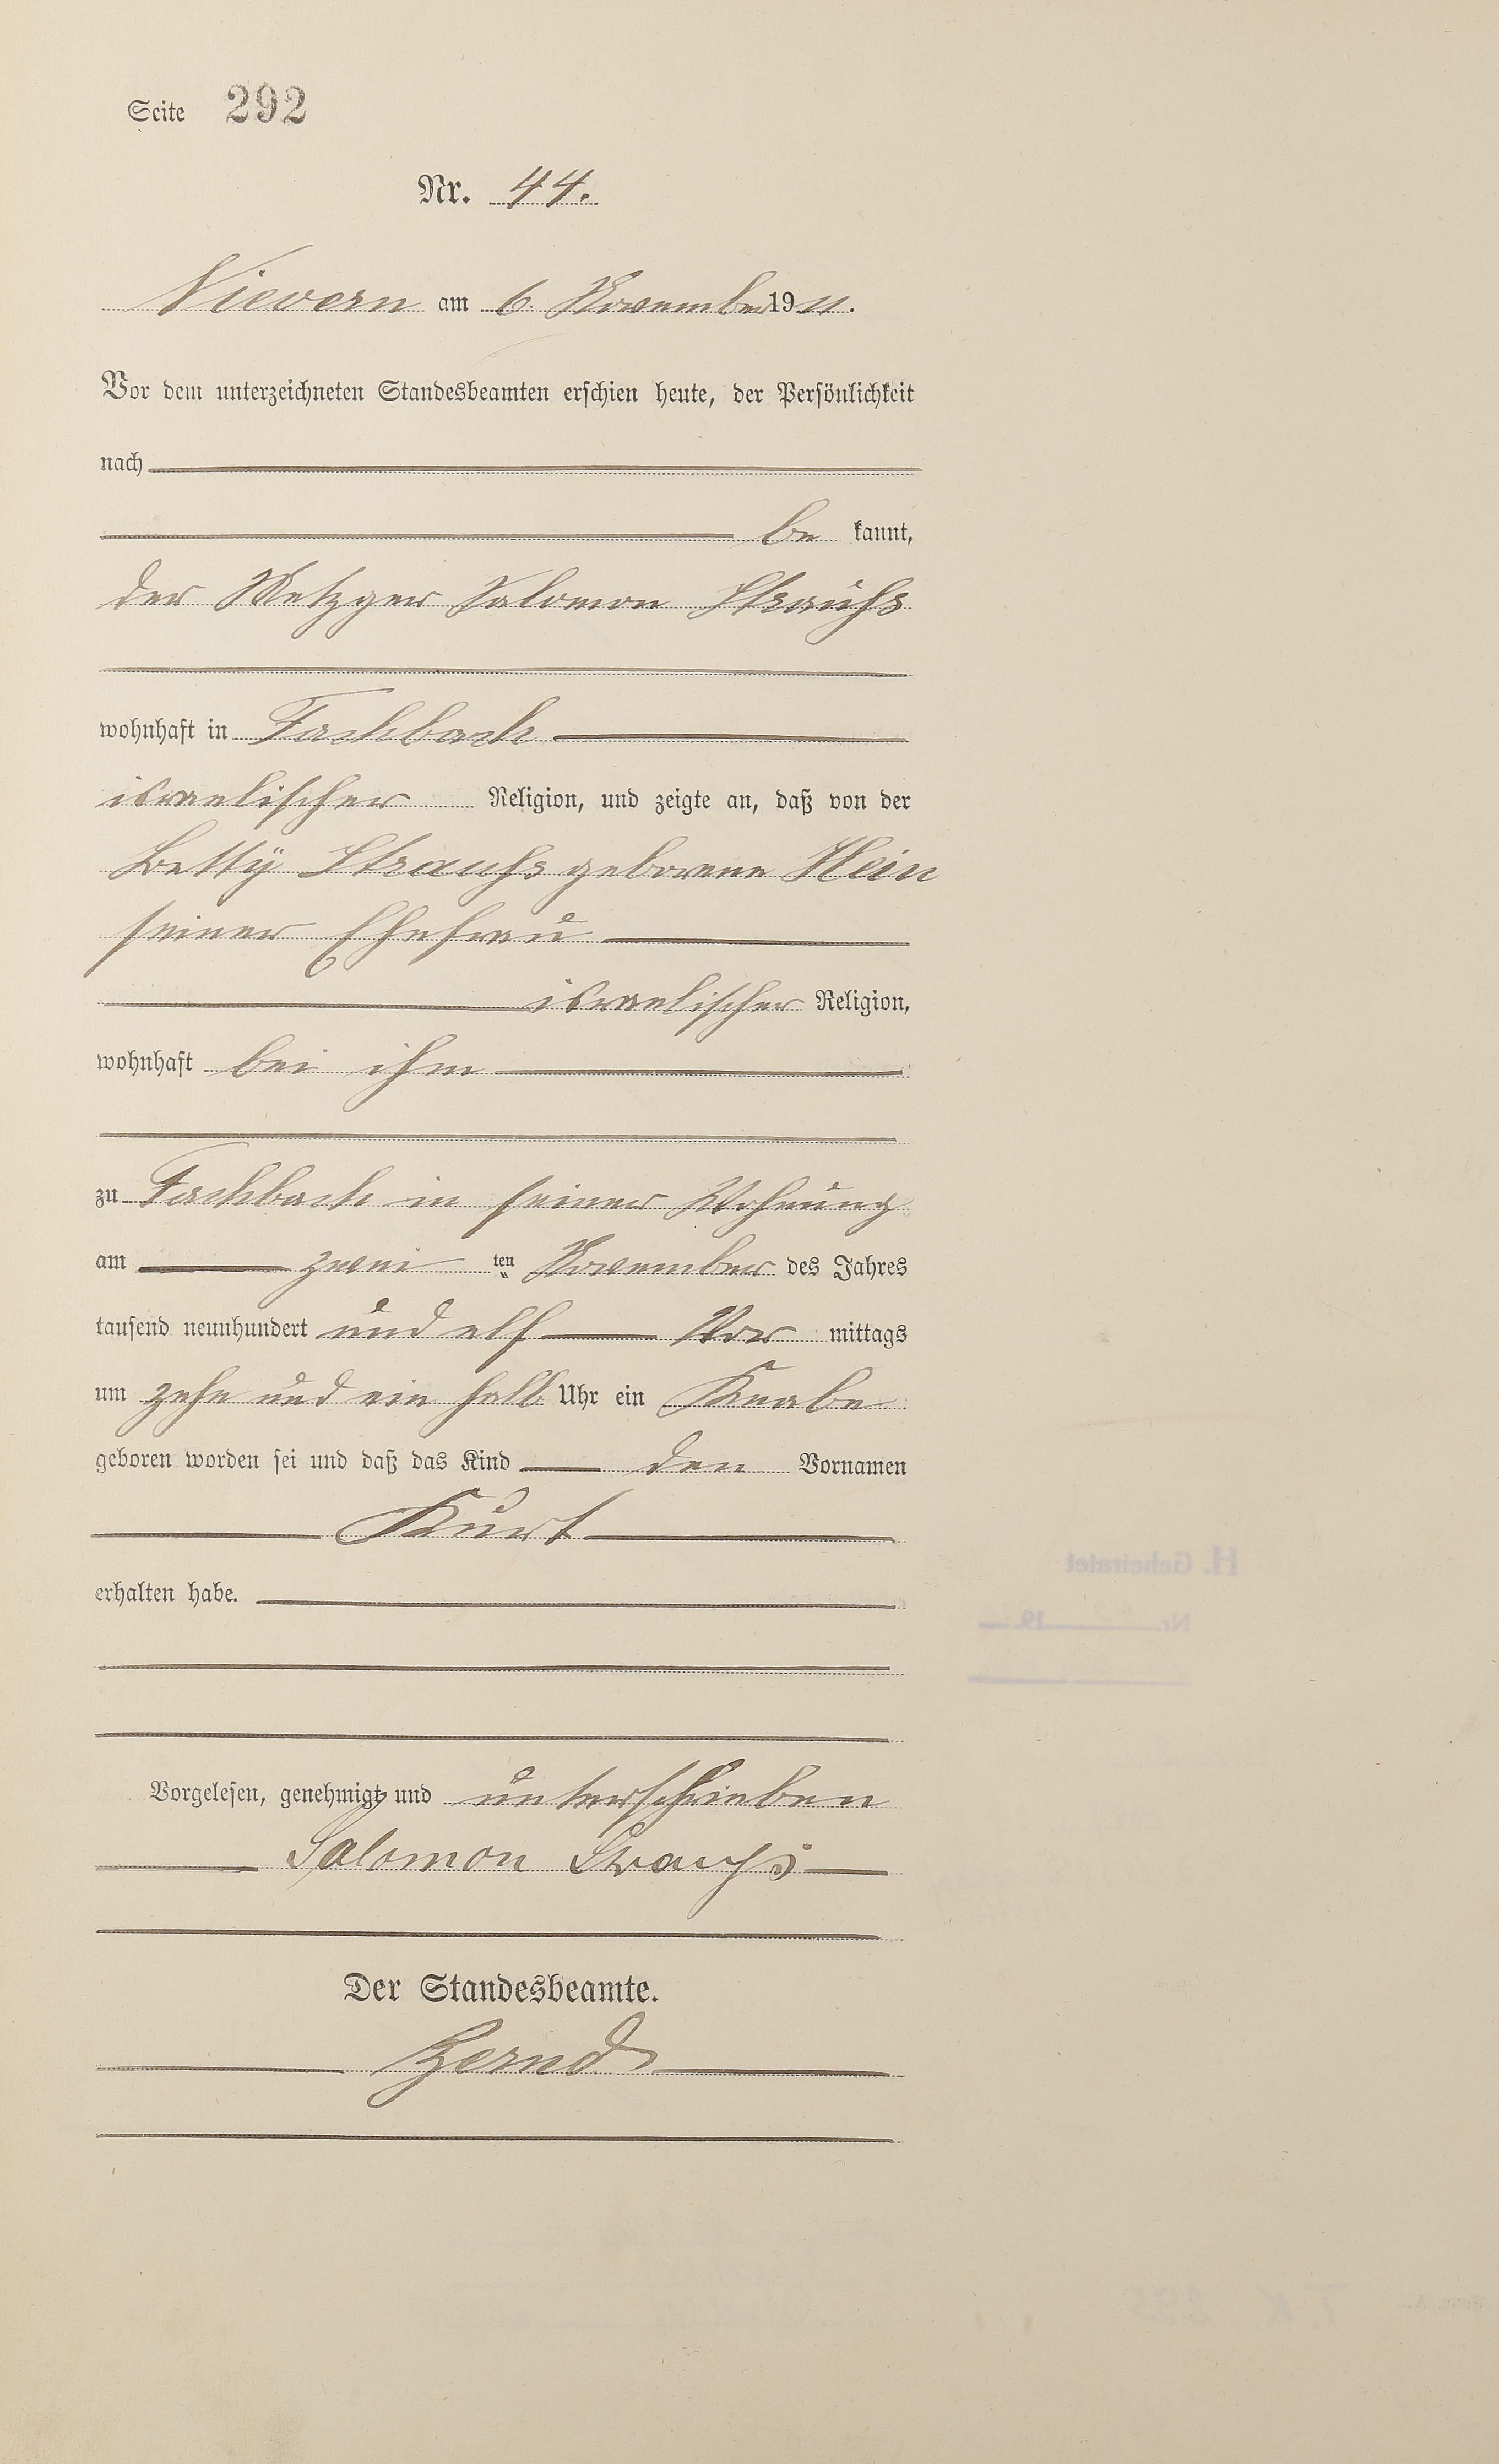 Seite 292
Nr. 44.
Nievern am 6. November 1911.
Vor dem unterzeichneten Standesbeamten erschien heute, der Persönlichkeit
nach
be kannt,
der Metzger Salomon Strauß
wohnhaft in Fachbach
israelischer Religion, und zeigte an, daß von der
Betty Strauß geborene Hein
seiner Ehefrau
israelischer Religion,
wohnhaft bei ihm
zu Fachbach in seiner Wohnung
am zwei ten November des Jahres
tausend neunhundert und elf Vor mittags
um zehn und ein halb Uhr ein Knabe
geboren worden sei und daß das Kind den Vornamen
Kurt
erhalten habe.
H. Geheiratet
Nr. 19
Vorgelesen, genehmigt und unterschrieben
Salomon Strauß
Der Standesbeamte.